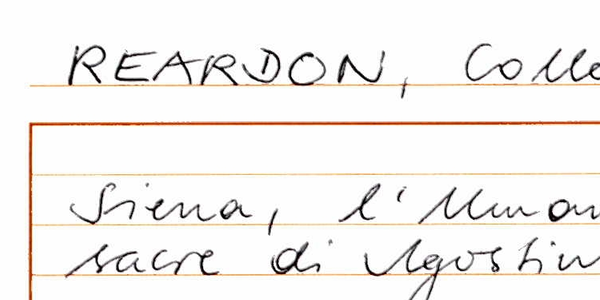 REARDON, Colle
Siena, l'Uman
sacre di Agostin